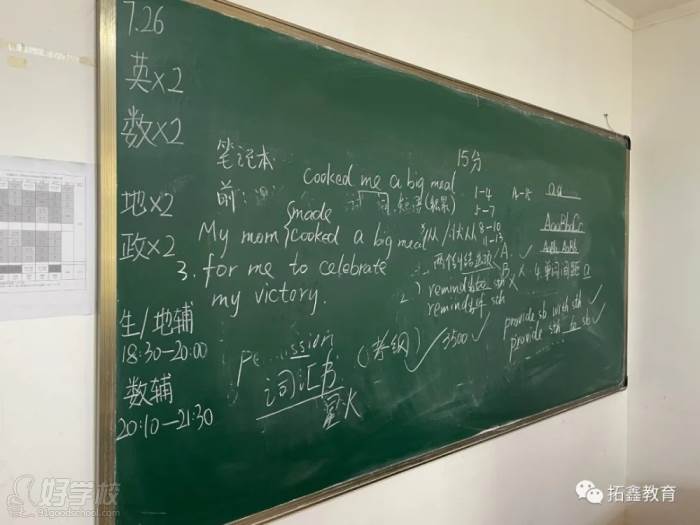 7.26
英×2
数×2
地×2
政×2
生/地辅
18:30—20:00
数辅
20:10—21:30
笔记本
前:
15分
cooked me a big meal
made
My mom cooked a big meal
3. for me to celebrate
my victory.
词汇书
(考纲)
3500
1-4
5-7
8-10
11-13
A.
B.
4.单词间距 a
remind sb of sth
AaBbCc
provide sb with sth
provide sth to sb
好学校
91goodschool.com
拓鑫教育